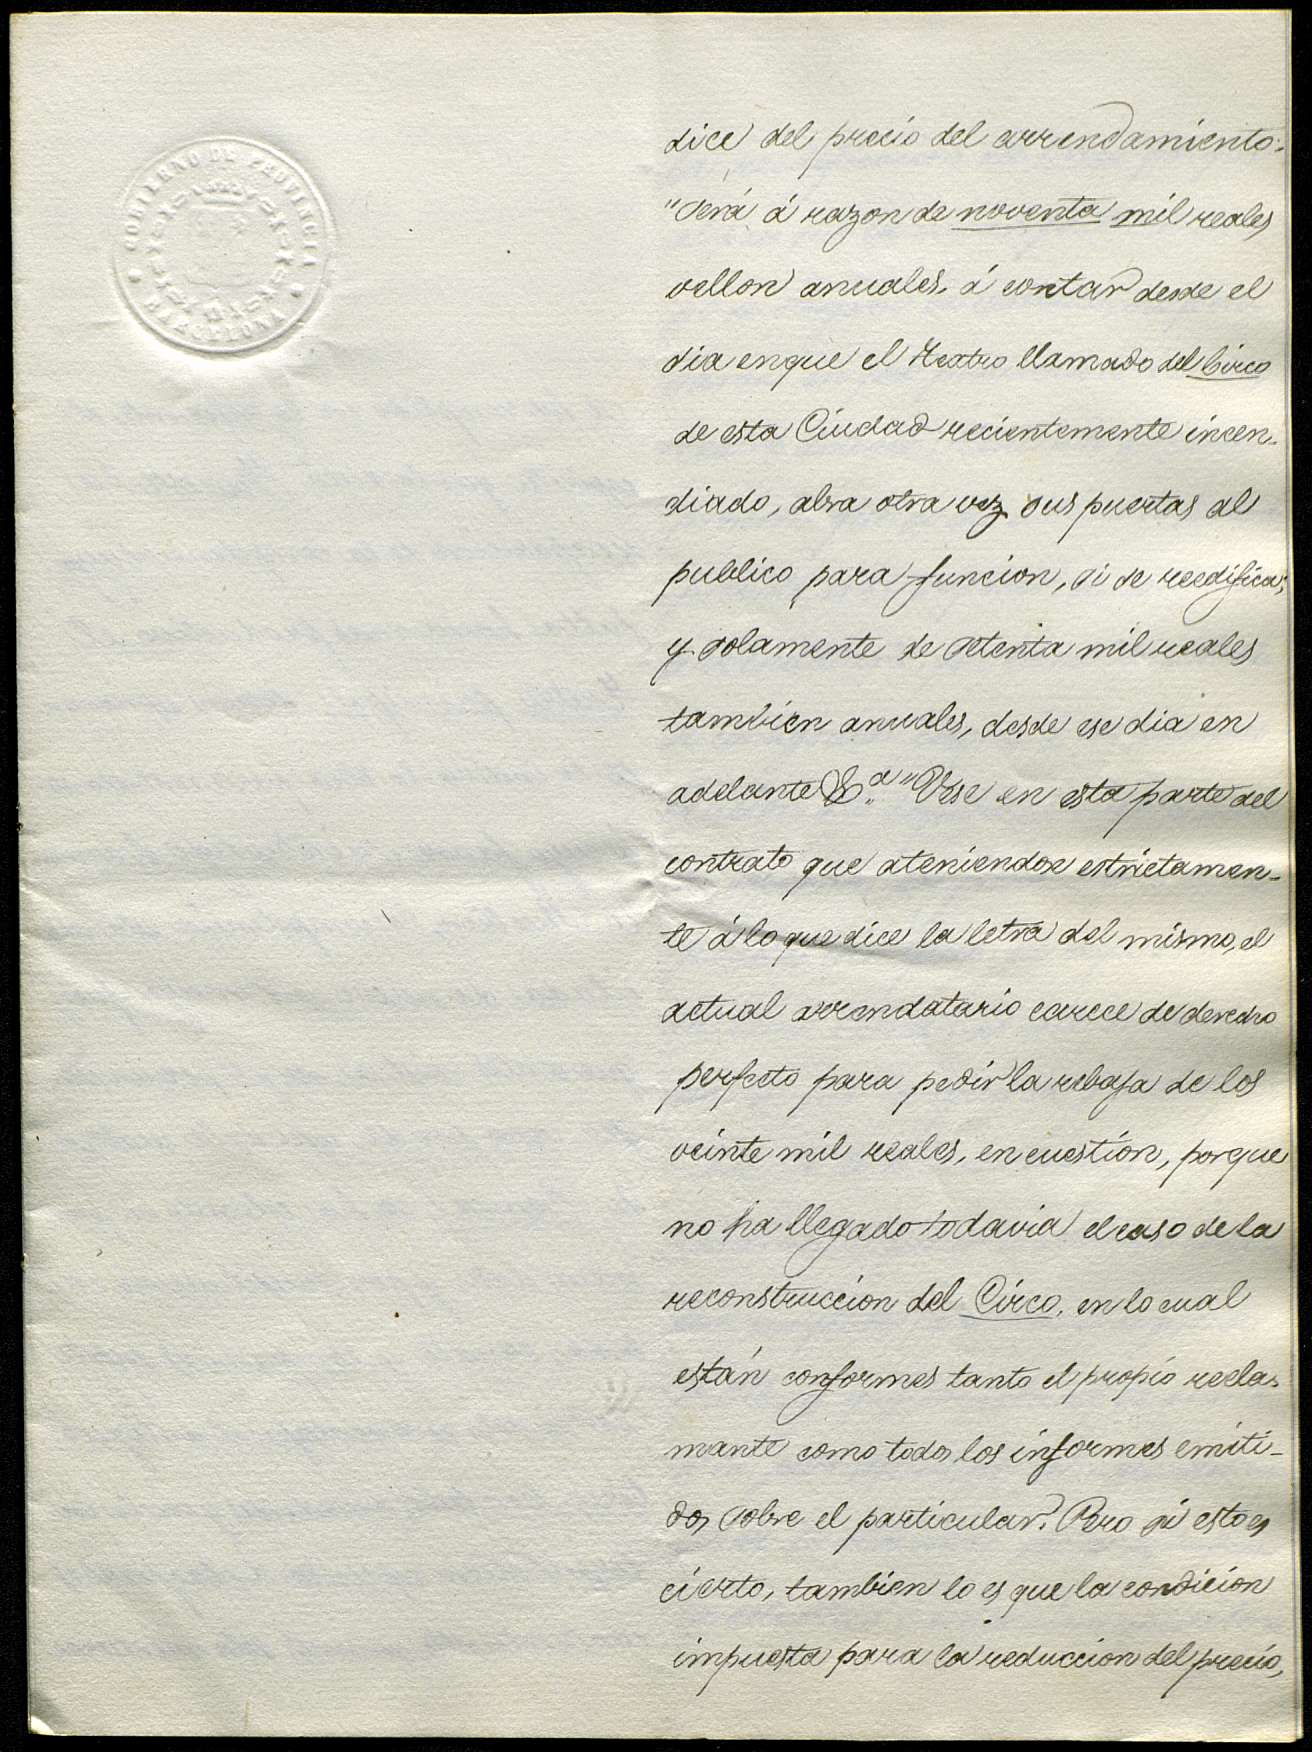 GOBIERNO DE PROVINCIA
BARCELONA
dice del precio del arrendamiento:
"Será á razon de noventa mil reales
vellon anuales, á contar desde el
dia en que el Teatro llamado del Circo
de esta Ciudad recientemente incen-
diado, abra otra vez sus puertas al
publico para funcion, si se reedifica;
y solamente de setenta mil reales
tambien anuales, desde ese dia en
adelante &.a" Vése en esta parte del
contrato que ateniendose estrictamen-
te á lo que dice la letra del mismo, el
actual arrendatario carece de derecho
perfecto para pedir la rebaja de los
veinte mil reales, en cuestion, porque
no ha llegado todavia el caso de la
reconstruccion del Circo, en lo cual
están conformes tanto el propio recla-
mante como todos los informes emiti-
dos sobre el particular. Pero si esto es
cierto, tambien lo es que la condicion
impuesta para la reduccion del precio,